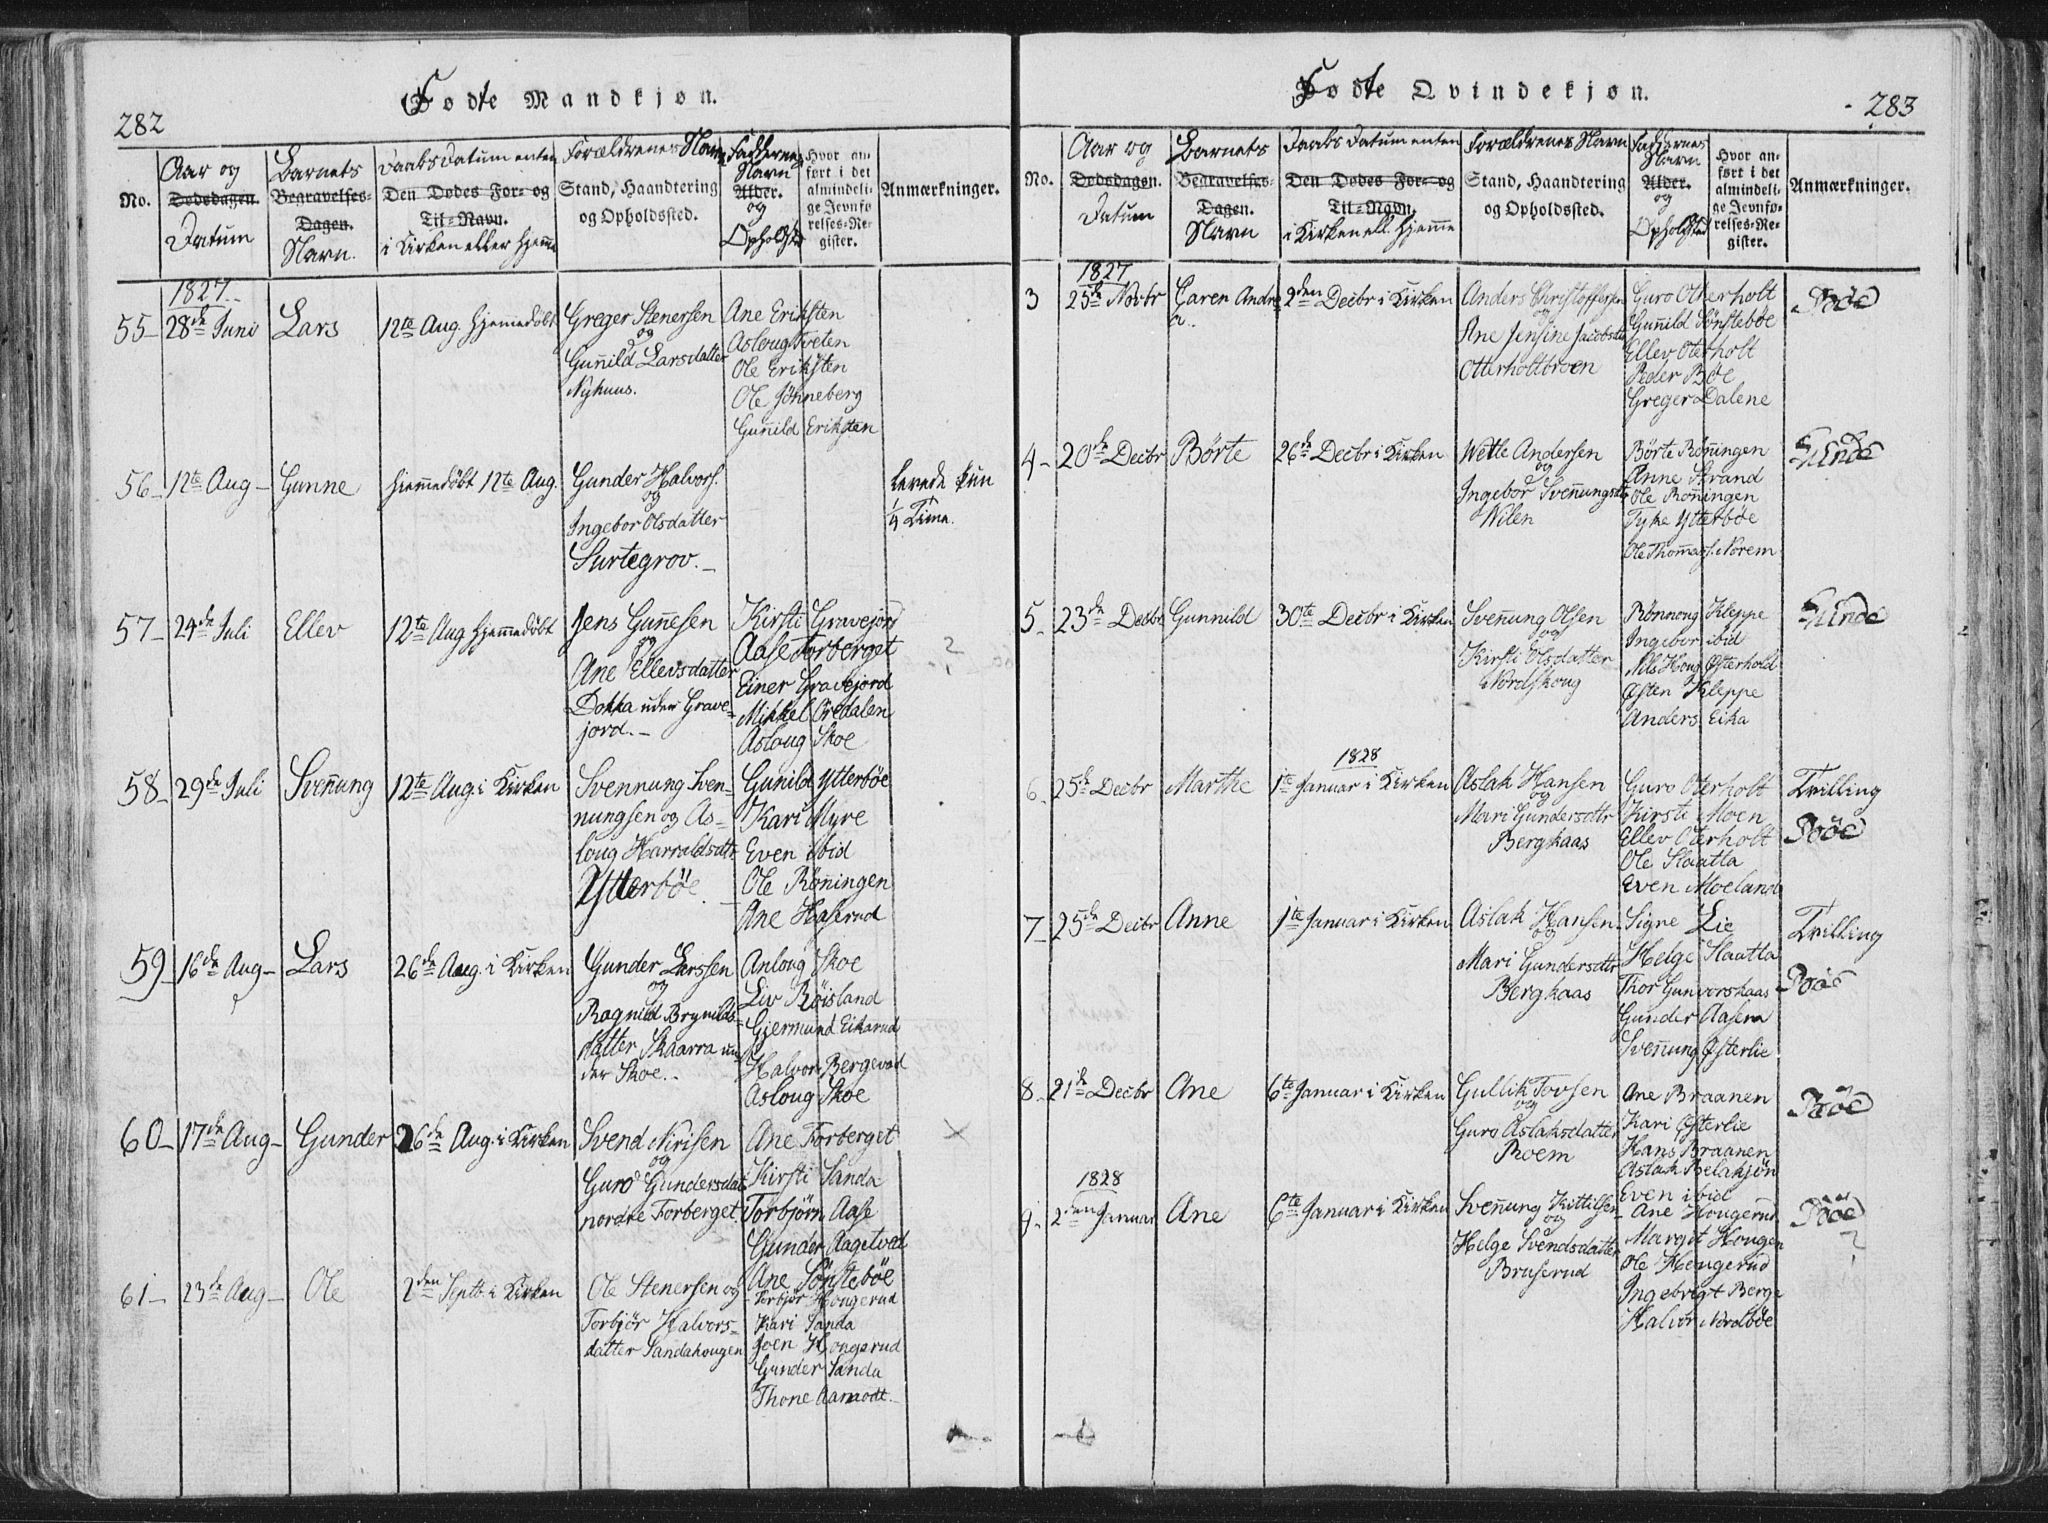 282
Fødte Mandkjøn.
No.
Aar og
Dødsdagen.
Datum
Barnets
Begravelses-
Dagen.
Navn.
Daabs Datum enten
Den Dødes For- og
Til-Navn.
i Kirken eller Hjemme
Forældrenes Navn
Stand, Haandtering
og Opholdssted.
Faddernes
Navn
Alder.
og
Opholdsted
Hvor an-
ført i det
almindeli-
ge Jevnfø-
relses-Re-
gister.
Anmærkninger.
1827.
55
28de Juni
Lars
12te Aug. Hjemmedøbt
Greger Stenersen
og
Gunnild Larsdatter
Nyhuus.
Ane Eriksten
Asloug Tveten
Ole Eriksten
Ole Jønneberg
Gunnild Eriksten
56
12te Aug
Gunne
Hjemmedøbt 12te Aug.
Gunder Halvors.
og
Ingebor Olsdatter
Surtegrov.
Levede kun
1/4 Time.
57
24de Juli
Ellev
12te Aug Hjemmedöbt
Jens Gunnesen
og
Ane Ellevsdatter
Dokka under Grave-
jord.
Kirsti Gravejord
Aase Forberget
Einer Gravejord
Mikkel Oredalen
Asloug Skoe
?
58
29de Juli
Svennung
12te Aug i Kirken
Svennung Sven-
nungsen og As-
loug Harraldsdtr
Ytterböe.
Gunild Ytterböe
Kari Myre
Even ibid
Ole Rønningen
Ane Haserud
59
16de Aug
Lars
26de Aug. i Kirken
Gunder Larssen
og
Ragnild Brynilds-
datter Skaarra un-
der Skoe.
Anloug Skoe
Liv Røisland
Gjermund Eikarud
Halvor Bergevad
Asloug Skoe
60
17de Aug
Gunder
26de Aug. i Kirken
Svend Nirisen
og
Guro Gundersdat
nordre Forberget
Ane Forberget
Kirsti Sanda
Torbjörn Aase
Gunder Aagetved
Ane Sönsteböe
61
23de Aug
Ole
2den Septb i Kirken
Ole Stenersen og
Torbjør Halvors-
datter Sandahougen
Torbjør Hougerud
Kari Sanda
Joen Hougerud
Gunder Sanda
Thone Aamodt.
283
Fødte Qvindekjøn.
No.
Aar og
Dødsdagen.
Datum
Barnets
Begravelses-
Dagen.
Navn
Daabs Datum enten
Den Dødes For- og
Til-Navn.
i Kirken ell. Hjemme
Forældrenes Navn
Stand, Haandtering
og Opholdssted.
Faddernes
Navn
Alder.
og
Opholdsted
Hvor an-
ført i det
almindeli-
ge Jevnfø-
relses-Re-
gister.
Anmærkninger.
1827
3
25de Novbr
Caren Andre
a.
2den Decbr i Kirken
Anders Christoffersen
og
Ane Jensine Jacobsdtr
Otterholtbroen
Guro Otterholt
Gunnild Sönsteböe
Ellev Oterholt
Peder Böe
Greger Dalene
Böe
4
20de Decbr
Børte
26de Decbr i Kirken
Wetle Andersen
og
Ingebor Svennungsdtr
Nilen
Børte Rønningen
Anne Strand
Ole Rønningen
Tyke Ytterbøe
Ole Thomass. Norem
Lunde
5
23de Decbr
Gunnild
30te Decbr i Kirken
Svennung Olsen
og
Kirsti Olsdatter
Nordskoug
Rønnoug Kleppe
Ingebor ibid
Nils Houg Østerhold
Østen Kleppe
Anders Eika
Lunde
6
25de Decbr
Marthe
1828
1te Januar i Kirken
Aslak Hansen
og
Mari Gundersdtr
Berghaas
Guro Oterholt
Kirsti Moen
Ellev Oterholt
Ole Staatta
Even Moeland
Tvilling
Böe
7
25de Decbr
Anne
1te Januar i Kirken
Aslak Hansen
og
Mari Gundersdtr
Berghaas
Signe Lie
Helge Staatta
Thor Gunvorshaas
Gunder Aasera
Svennung Østerlie
Tvilling
Böe
8
21de Decbr
Ane
6te Januar i Kirken
Gullik Tovsen
og
Guro Aslaksdatter
Roem
Ane Braanen
Kari Østerlie
Hans Braanen
Aslak Relakjön
Even ibid
Böe
1828
9
2den Januar
Ane
6te Januar i Kirken
Svennung Kittilsen
og
Helge Svendsdatter
Bruserud
Ane Hougerud
Margit Hougen
Ole Hougerud
Ingebrigt Berge
Halvor Nordböe
Böe
?